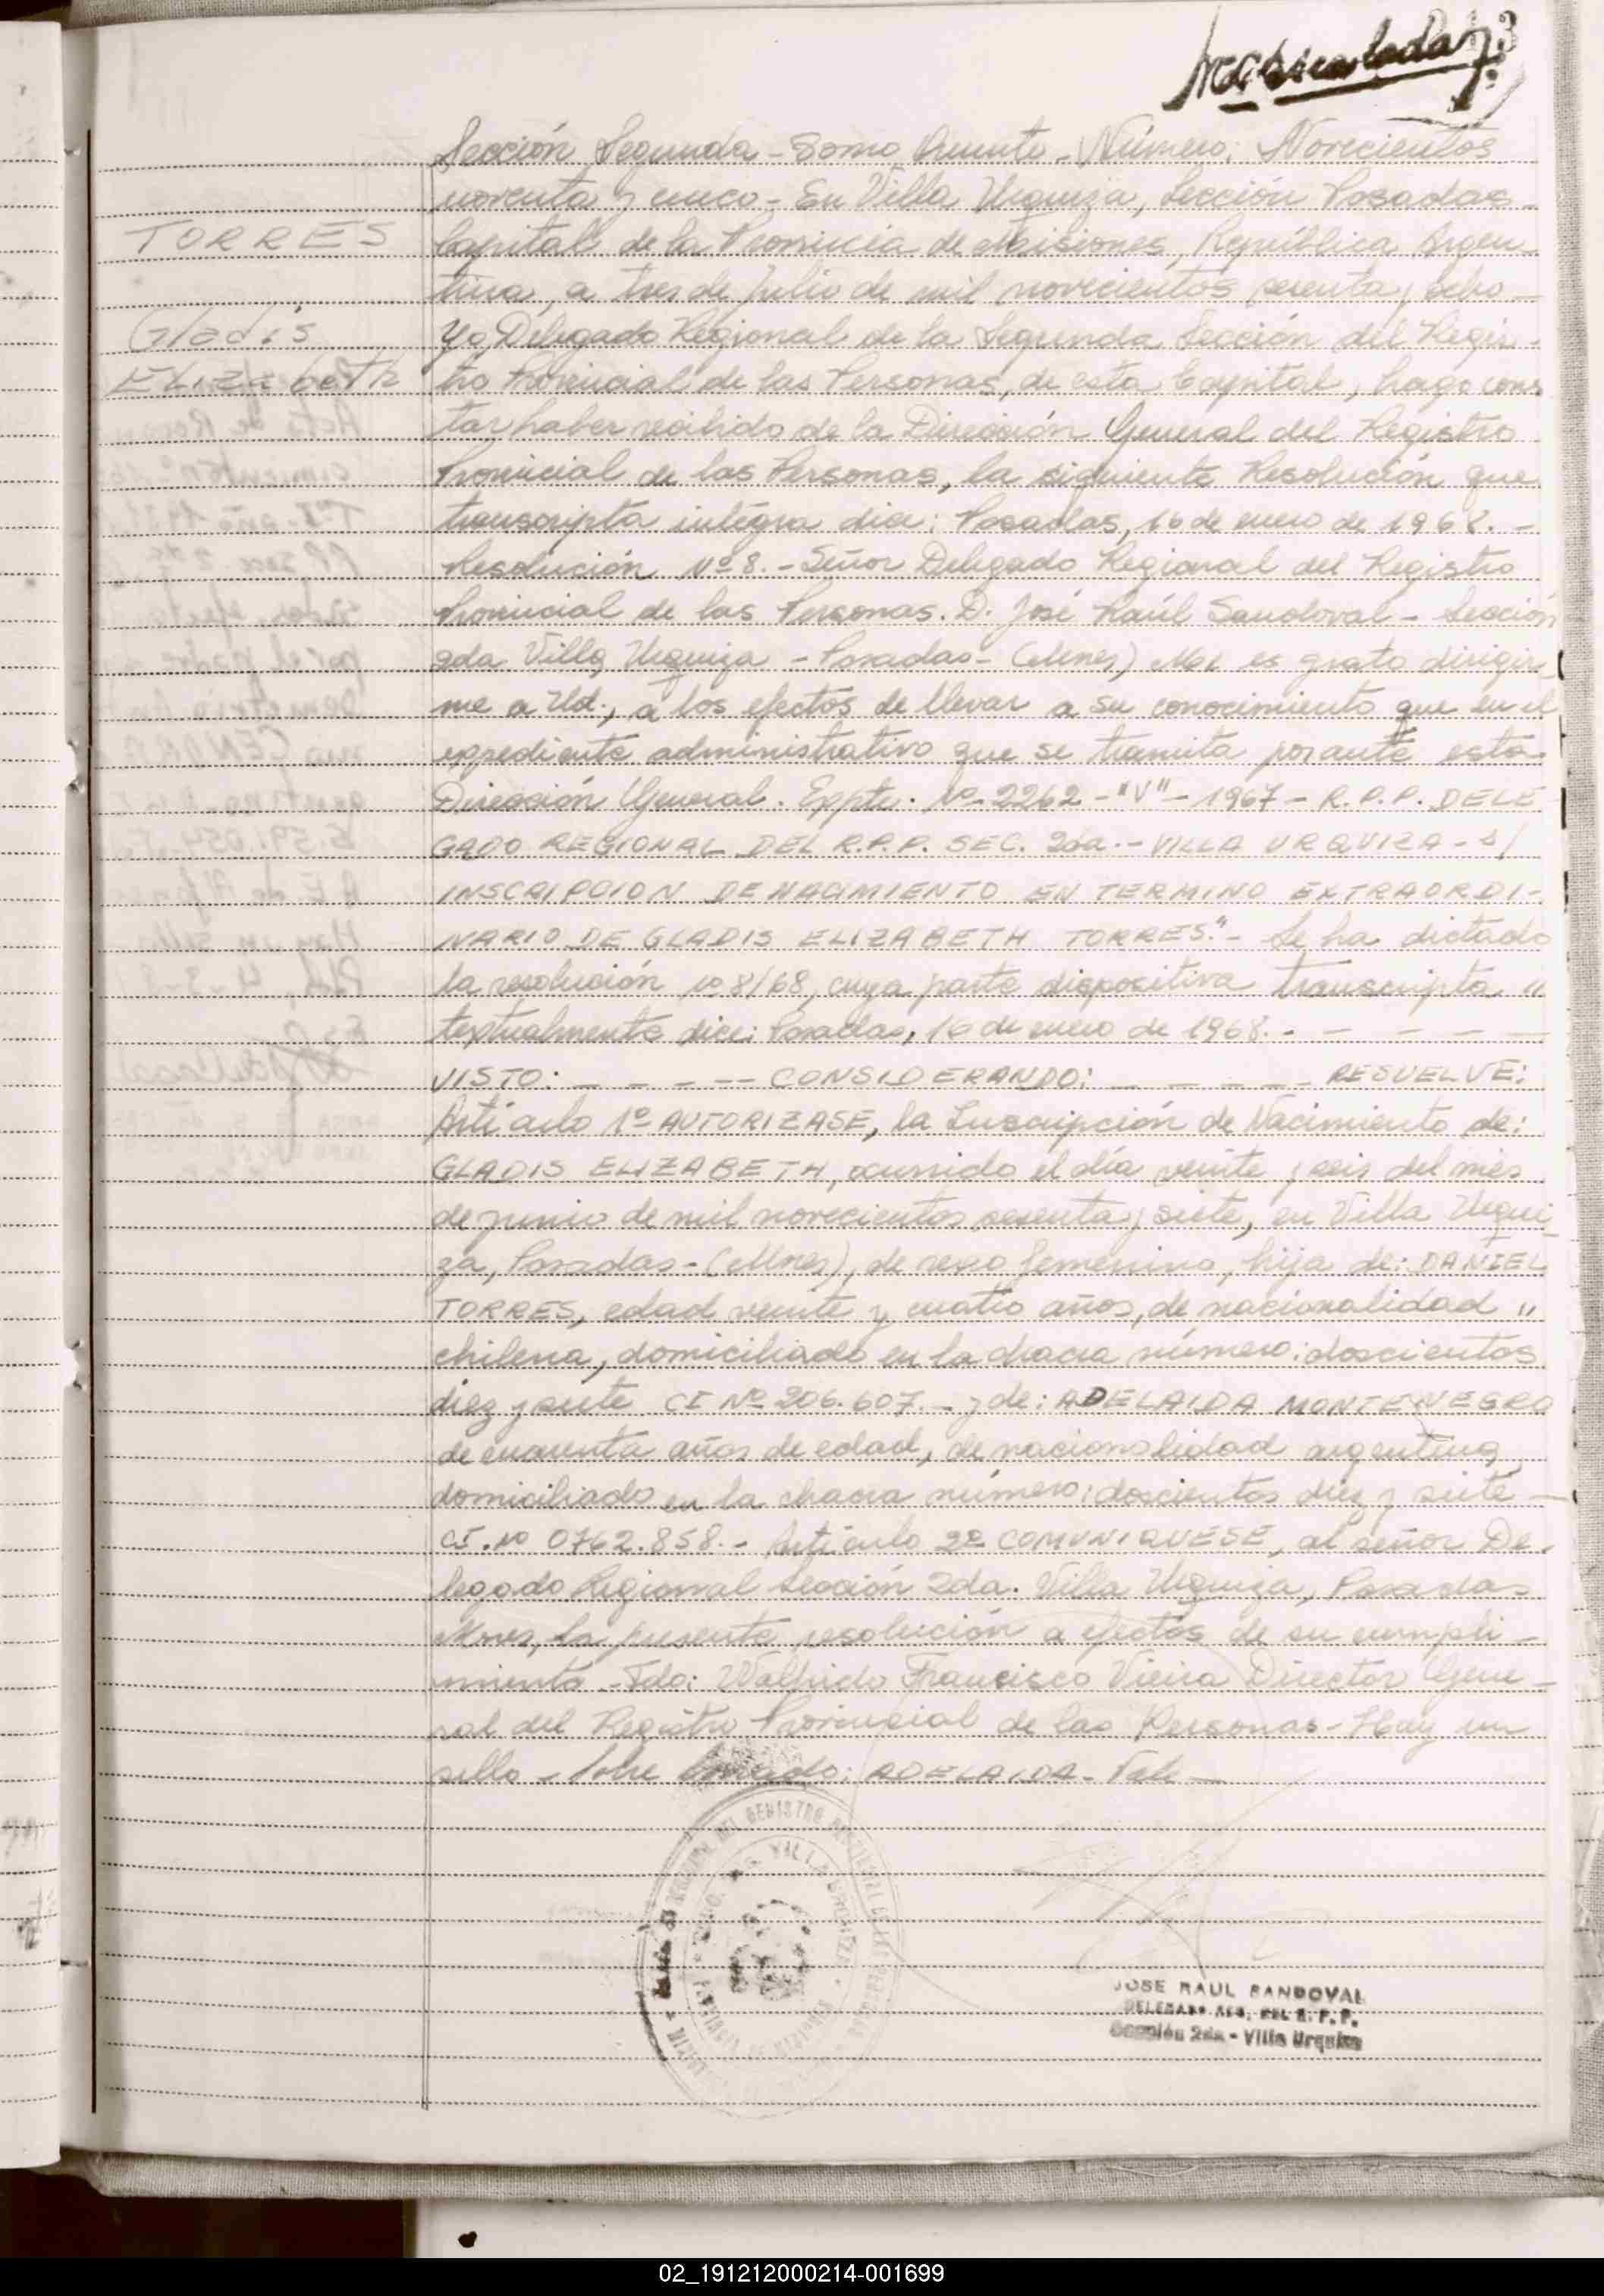 Sección Segunda - Tomo Veinte - Número: Novecientos
noventa y cinco - En Villa Urquiza, Sección Posadas
TORRES
Capital de la Provincia de Misiones, República Argen-
tina, a tres de Julio de mil novecientos sesenta y ocho -
Gladis
ELIZabeth
Yo, Delegado Regional de la Segunda Sección del Regis-
tro Provincial de las Personas, de esta Capital, hago cons
tar haber recibido de la Dirección General del Registro
Provincial de las Personas, la siguiente Resolución que
transcripta integra dice: Posadas, 16 de enero de 1968. -
Resolución Nº 8. - Señor Delegado Regional del Registro
Provincial de las Personas. D. José Raúl Sandoval - Sección
2da Villa Urquiza - Posadas - (Mnes) Me es grato dirigir
me a Ud., a los efectos de llevar a su conocimiento que en el
expediente administrativo que se tramita por ante esta
Dirección General. Expte. Nº 2262 - "V" - 1967 - R.P.P. DELE
GADO REGIONAL DEL R.P.P. SEC. 2da. - VILLA URQUIZA - s/
INSCRIPCION DE NACIMIENTO EN TERMINO EXTRAORDI-
NARIO DE GLADIS ELIZABETH TORRES." - Se ha dictado
la resolución nº 8/68, cuya parte dispositiva transcripta "
textualmente dice: Posadas, 16 de enero de 1968. - - - - -
VISTO: - - - - - CONSIDERANDO: - - - - - RESUELVE:
Artículo 1º AUTORIZASE, la Inscripción de Nacimiento de:
GLADIS ELIZABETH, ocurrido el día veinte y seis del mes
de junio de mil novecientos sesenta y siete, en Villa Urqui-
za, Posadas - (Mnes), de sexo femenino, hija de: DANIEL
TORRES, edad veinte y cuatro años, de nacionalidad "
chilena, domiciliado en la chacra número: doscientos
diez y siete CI Nº 206.607. - y de: ADELAIDA MONTENEGRO
de cuarenta años de edad, de nacionalidad argentina,
domiciliado en la chacra número: doscientos diez y siete -
CI. Nº 0762.858. - Artículo 2º COMUNIQUESE, al señor De-
legado Regional Sección 2da. Villa Urquiza, Posadas
Mnes, la presente resolución a efectos de su cumpli-
miento - Fdo: Walfrido Francisco Vieira Director Gene-
ral del Registro Provincial de las Personas - Hay un
sello - Sobre borrado: ADELAIDA - Vale -
JOSE RAUL SANDOVAL
DELEGADO REG. DEL R. P. P.
Sección 2da - Villa Urquiza
02_191212000214-001699